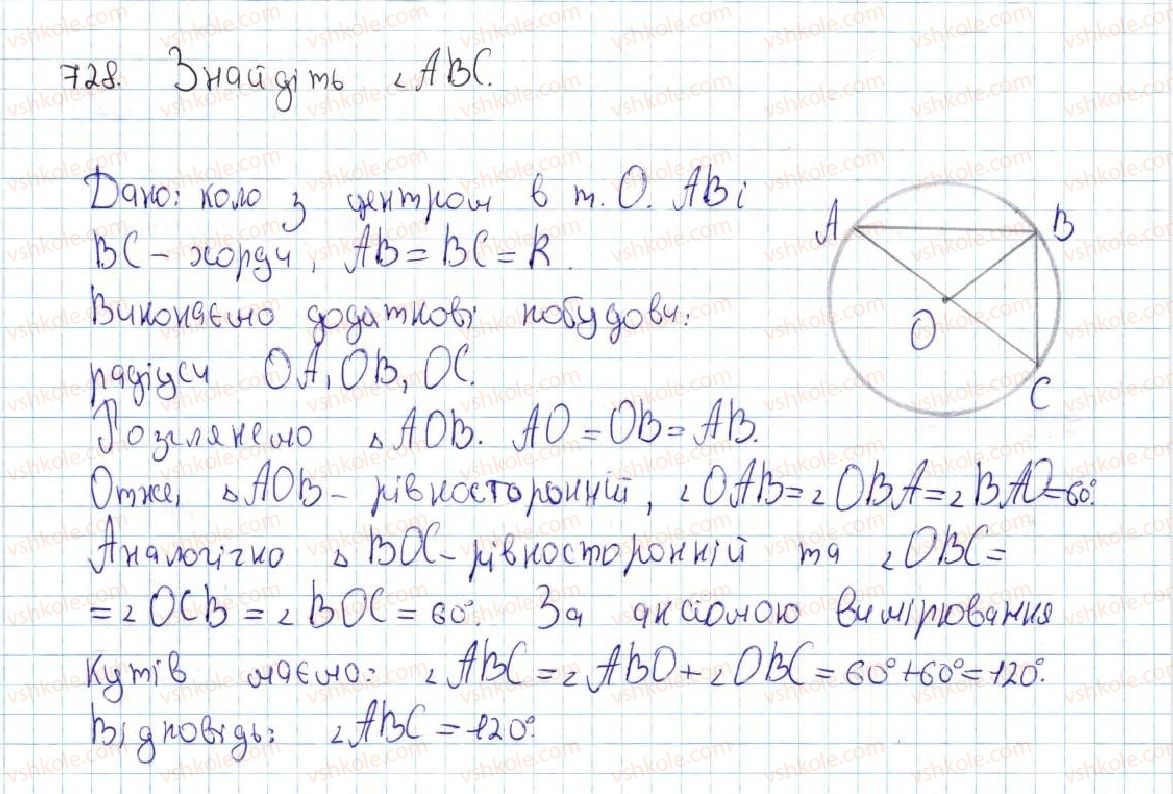 728. Знайдіть ∠ABC.
Дано: коло з центром в т. O. AB і
BC – хорди, AB = BC = R.
Виконаємо додаткові побудови:
радіуси OA, OB, OC.
Розглянемо ▵AOB. AO = OB = AB.
Отже, ▵AOB – рівносторонній, ∠OAB = ∠OBA = ∠BAO = 60°.
Аналогічно ▵BOC – рівносторонній та ∠OBC =
= ∠OCB = ∠BOC = 60°. За аксіомою вимірювання
кутів маємо: ∠ABC = ∠ABO + ∠OBC = 60° + 60° = 120°.
Відповідь: ∠ABC = 120°.
A
B
O
C
vshkole.com